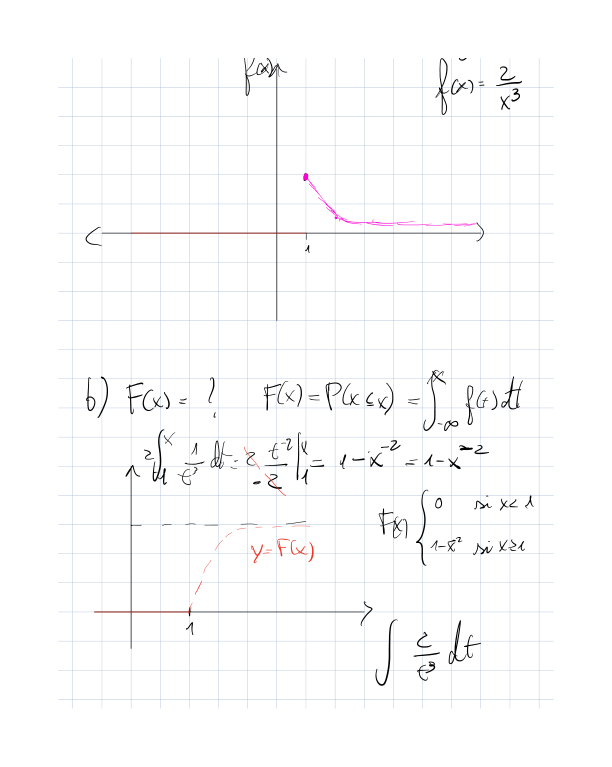 f(x)
f(x) = 2/x³
1
b) F(x) = ? F(x) = P(X ≤ x) = ∫_{-∞}^{x} f(t) dt
2∫_1^x 1/t³ dt = 2 t⁻²/-2 |_1^x = 1 - x⁻² = 1 - x⁻²
F(x) { 0 si x < 1
1 - x⁻² si x ≥ 1
y = F(x)
1
∫ 2/t³ dt